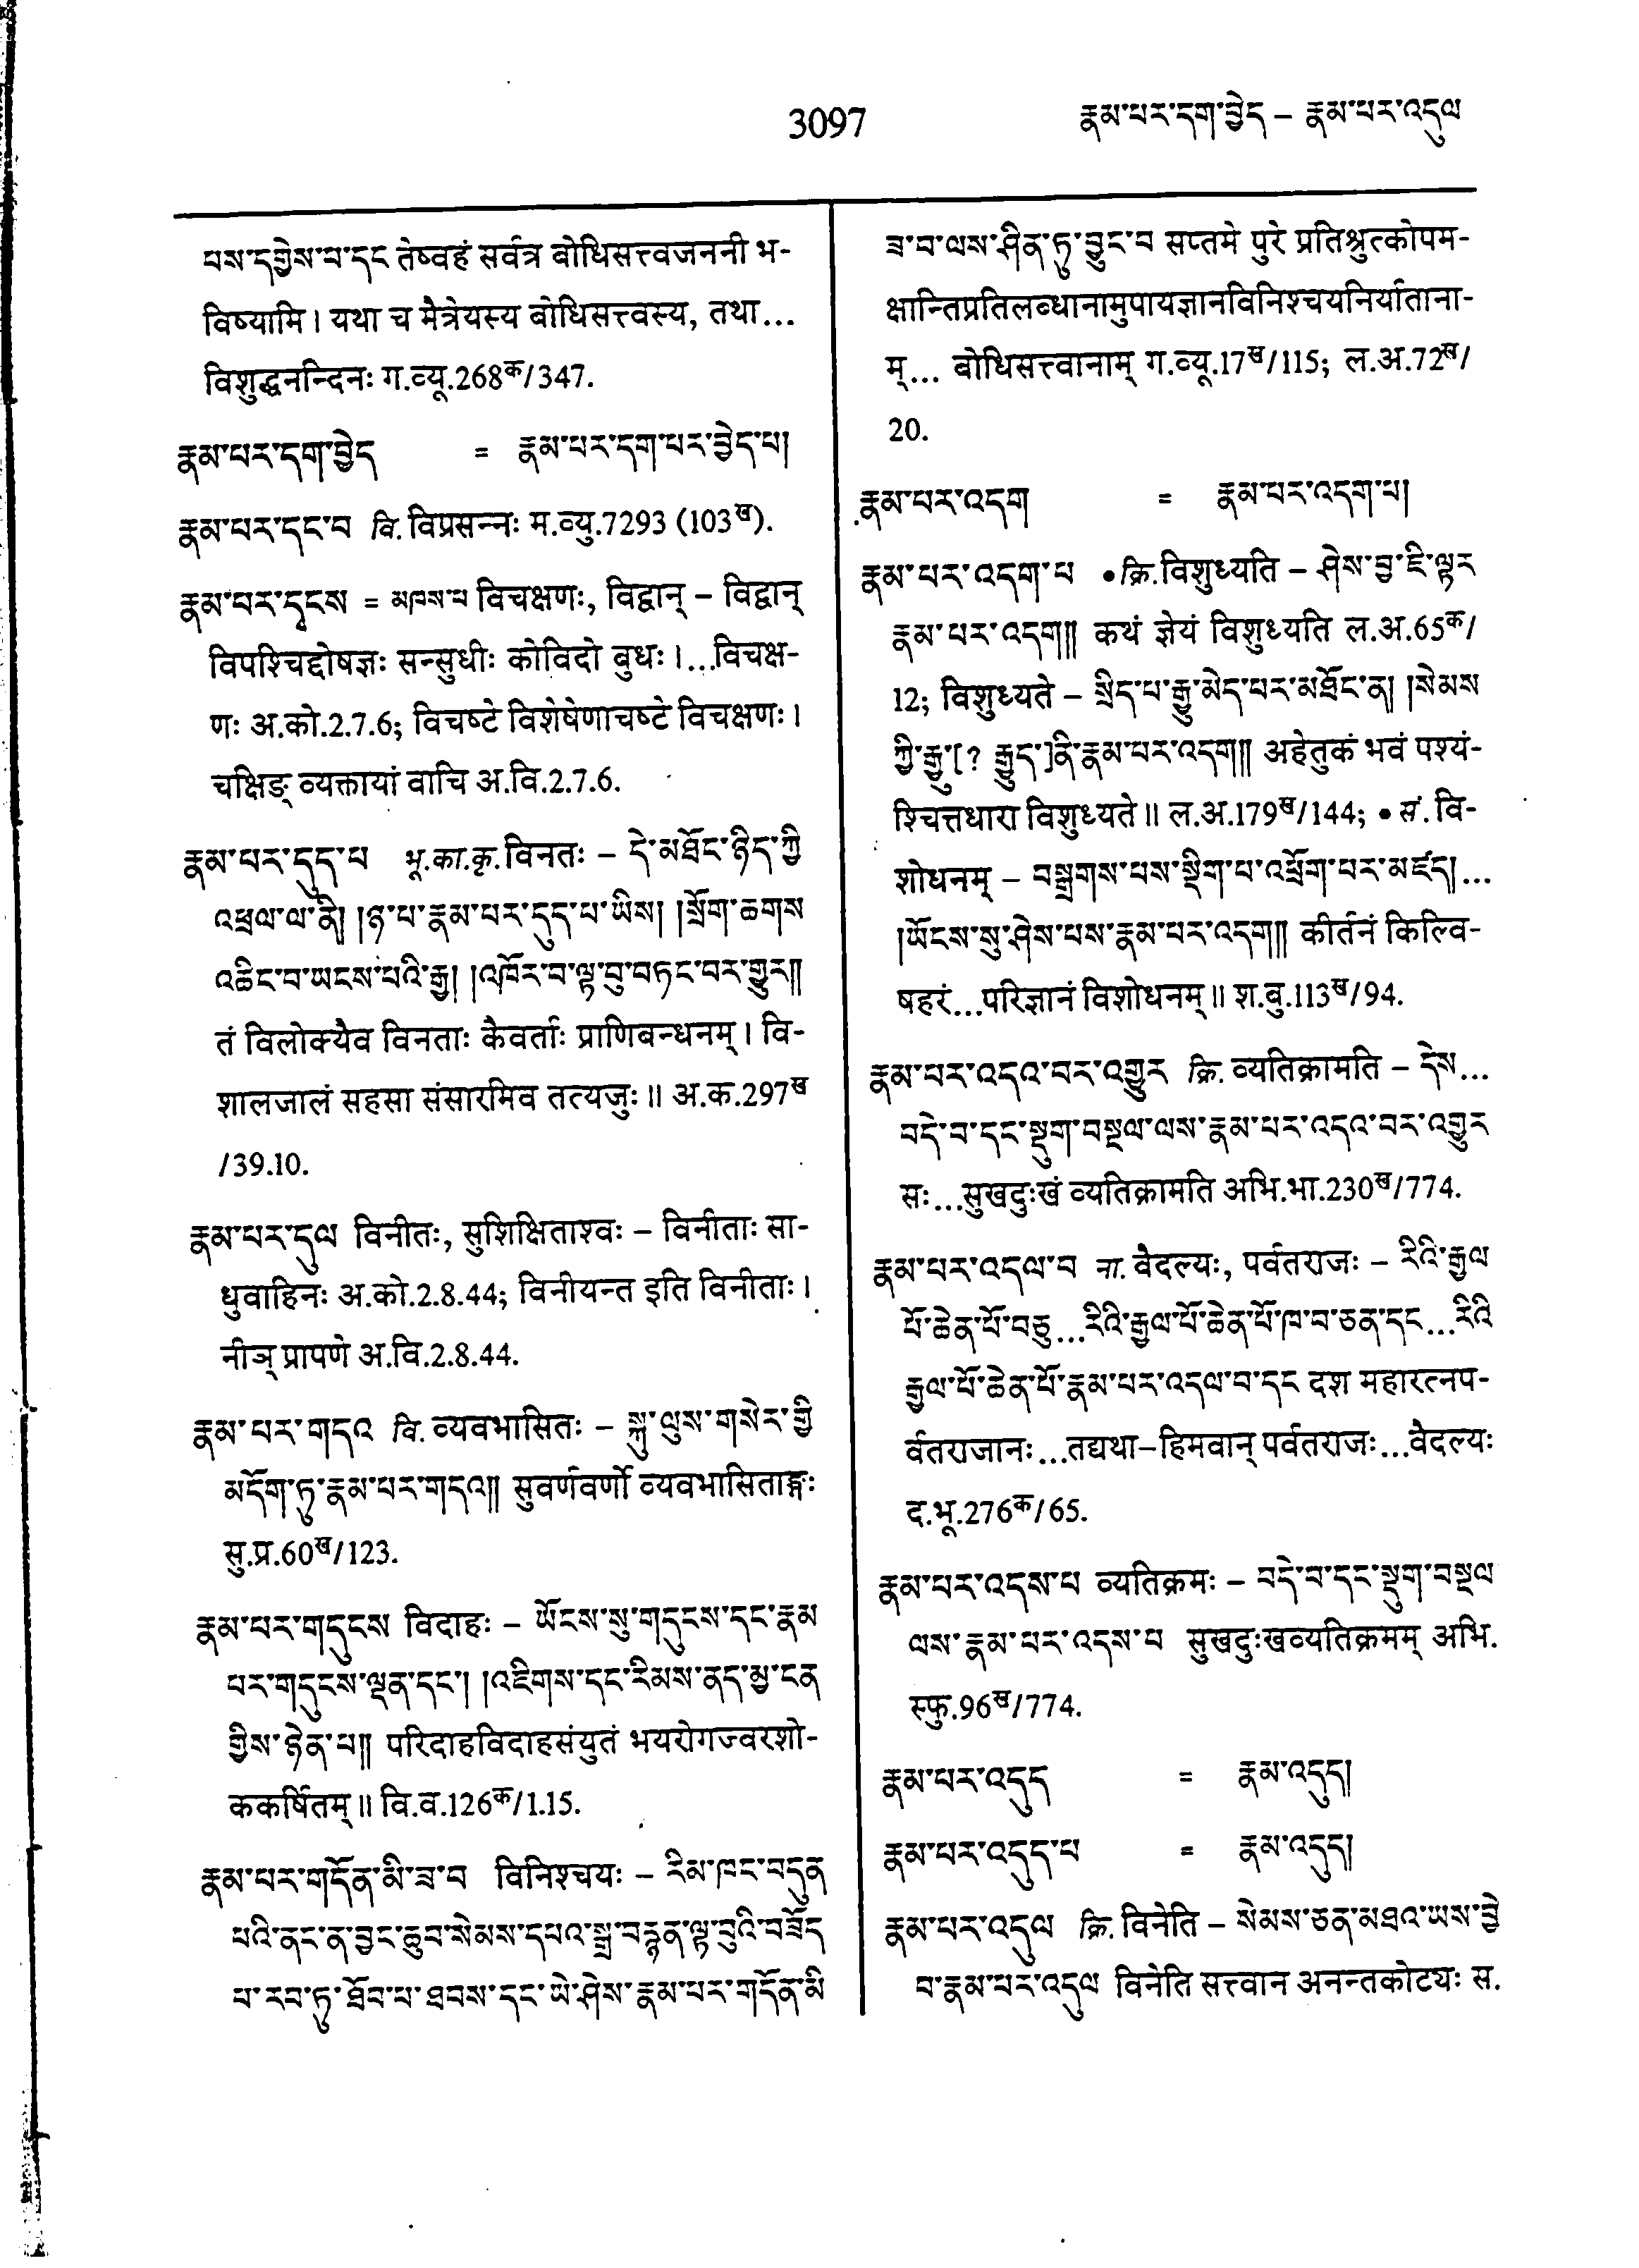 3097
རྣམ་པར་དག་བྱེད – རྣམ་པར་འདུལ
པས་དགྱེས་པ་དང तेष्वहं सर्वत्र बोधिसत्त्वजननी भ-
विष्यामि । यथा च मैत्रेयस्य बोधिसत्त्वस्य, तथा...
विशुद्धनन्दिनः ग.व्यू.268क/347.
རྣམ་པར་དག་བྱེད = རྣམ་པར་དག་པར་བྱེད་པ།
རྣམ་པར་དང་བ वि. विप्रसन्नः म.व्यु.7293 (103ख).
རྣམ་པར་དྭངས = མཁས་པ विचक्षणः, विद्वान् – विद्वान्
विपश्चिद्दोषज्ञः सन्सुधीः कोविदो बुधः ।...विचक्ष-
णः अ.को.2.7.6; विचष्टे विशेषेणाचष्टे विचक्षणः ।
चक्षिङ् व्यक्तायां वाचि अ.वि.2.7.6.
རྣམ་པར་དུད་པ भू.का.कृ. विनतः – དེ་མཐོང་ཉིད་ཀྱི
འཕྲལ་ལ་ནི། །ཉ་པ་རྣམ་པར་དུད་པ་ཡིས། །སྲོག་ཆགས
འཆིང་བ་ཡངས་པའི་རྒྱ། །འཁོར་བ་ལྟ་བུ་བཏང་བར་གྱུར༎
तं विलोक्यैव विनताः कैवर्ताः प्राणिबन्धनम् । वि-
शालजालं सहसा संसारमिव तत्यजुः ॥ अ.क.297ख
/39.10.
རྣམ་པར་དུལ विनीतः, सुशिक्षिताश्वः – विनीताः सा-
धुवाहिनः अ.को.2.8.44; विनीयन्त इति विनीताः ।
नीञ् प्रापणे अ.वि.2.8.44.
རྣམ་པར་གདའ वि. व्यवभासितः – སྐུ་ལུས་གསེར་གྱི
མདོག་ཏུ་རྣམ་པར་གདའ༎ सुवर्णवर्णो व्यवभासिताङ्गः
सु.प्र.60ख/123.
རྣམ་པར་གདུངས विदाहः – ཡོངས་སུ་གདུངས་དང་རྣམ
པར་གདུངས་ལྡན་དང་། །འཇིགས་དང་རིམས་ནད་མྱ་ངན
གྱིས་ཉེན་པ༎ परिदाहविदाहसंयुतं भयरोगज्वरशो-
ककर्षितम् ॥ वि.व.126क/1.15.
རྣམ་པར་གདོན་མི་ཟ་བ विनिश्चयः – རིམ་ཁང་བདུན
པའི་ནང་ན་བྱང་ཆུབ་སེམས་དཔའ་སྒྲ་བརྙན་ལྟ་བུའི་བཟོད
པ་རབ་ཏུ་ཐོབ་པ་ཐབས་དང་ཡེ་ཤེས་རྣམ་པར་གདོན་མི
ཟ་བ་ལས་ཤིན་ཏུ་བྱུང་བ सप्तमे पुरे प्रतिश्रुत्कोपम-
क्षान्तिप्रतिलब्धानामुपायज्ञानविनिश्चयनिर्याताना-
म्... बोधिसत्त्वानाम् ग.व्यू.17ख/115; ल.अ.72ख/
20.
རྣམ་པར་འདག = རྣམ་པར་འདག་པ།
རྣམ་པར་འདག་པ • क्रि. विशुध्यति – ཤེས་བྱ་ཇི་ལྟར
རྣམ་པར་འདག༎ कथं ज्ञेयं विशुध्यति ल.अ.65क/
12; विशुध्यते – སྲིད་པ་རྒྱུ་མེད་པར་མཐོང་ན། །སེམས
ཀྱི་རྒྱུ་[? རྒྱུད་]ནི་རྣམ་པར་འདག༎ अहेतुकं भवं पश्यं-
श्चित्तधारा विशुध्यते ॥ ल.अ.179ख/144; • सं. वि-
शोधनम् – བསྒྲགས་པས་སྡིག་པ་འཕྲོག་པར་མཛད།...
།ཡོངས་སུ་ཤེས་པས་རྣམ་པར་འདག༎ कीर्तनं किल्वि-
षहरं...परिज्ञानं विशोधनम् ॥ श.बु.113ख/94.
རྣམ་པར་འདའ་བར་འགྱུར क्रि. व्यतिक्रामति – དེས...
བདེ་བ་དང་སྡུག་བསྔལ་ལས་རྣམ་པར་འདའ་བར་འགྱུར
सः...सुखदुःखं व्यतिक्रामति अभि.भा.230ख/774.
རྣམ་པར་འདལ་བ ना. वैदल्यः, पर्वतराजः – རིའི་རྒྱལ
པོ་ཆེན་པོ་བཅུ...རིའི་རྒྱལ་པོ་ཆེན་པོ་ཁ་བ་ཅན་དང...རིའི
རྒྱལ་པོ་ཆེན་པོ་རྣམ་པར་འདལ་བ་དང दश महारत्नप-
र्वतराजानः...तद्यथा–हिमवान् पर्वतराजः...वैदल्यः
द.भू.276क/65.
རྣམ་པར་འདས་པ व्यतिक्रमः – བདེ་བ་དང་སྡུག་བསྔལ
ལས་རྣམ་པར་འདས་པ सुखदुःखव्यतिक्रमम् अभि.
स्फु.96ख/774.
རྣམ་པར་འདུད = རྣམ་འདུད།
རྣམ་པར་འདུད་པ = རྣམ་འདུད།
རྣམ་པར་འདུལ क्रि. विनेति – སེམས་ཅན་མཐའ་ཡས་བྱེ
བ་རྣམ་པར་འདུལ विनेति सत्त्वान अनन्तकोट्यः स.